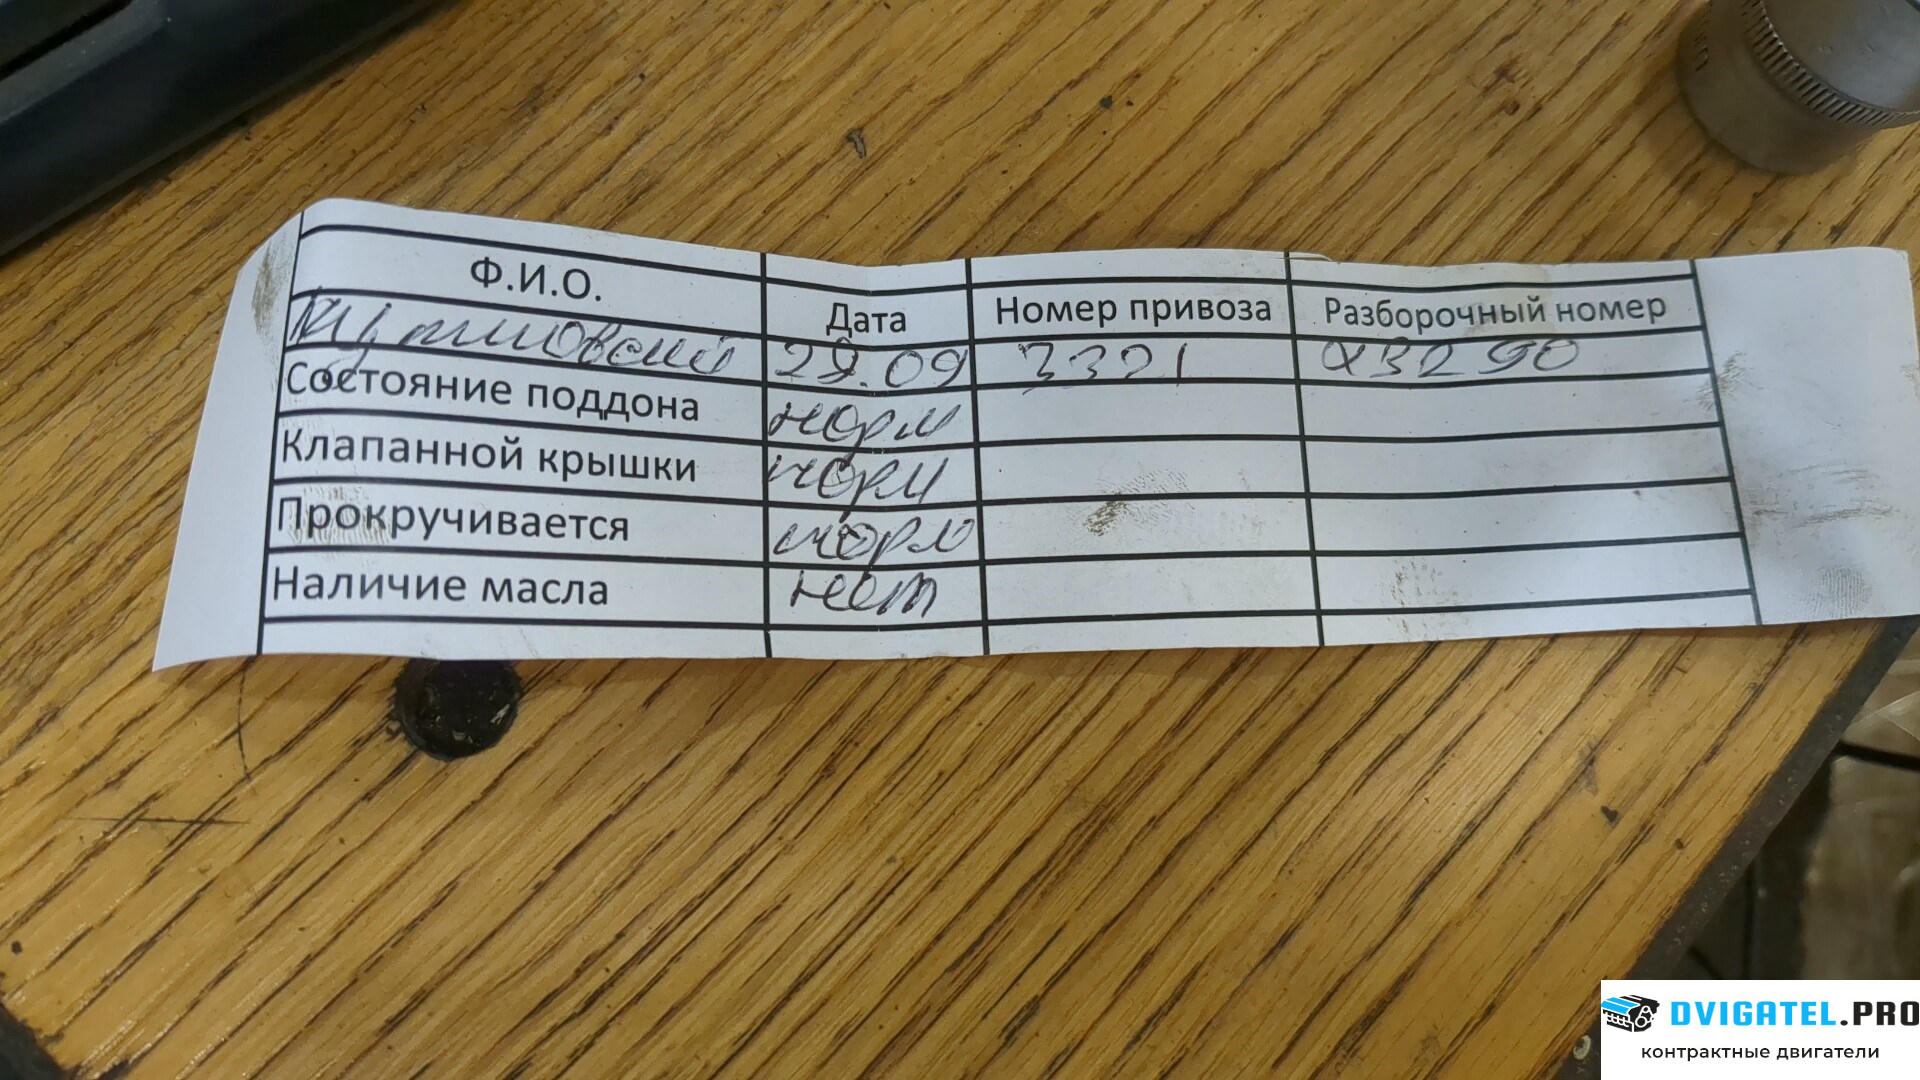 Ф.И.О. Дата Номер привоза Разборочный номер
29.09 3321 X3290
Состояние поддона норм
Клапанной крышки норм
Прокручивается норм
Наличие масла нет
DVIGATEL.PRO
контрактные двигатели